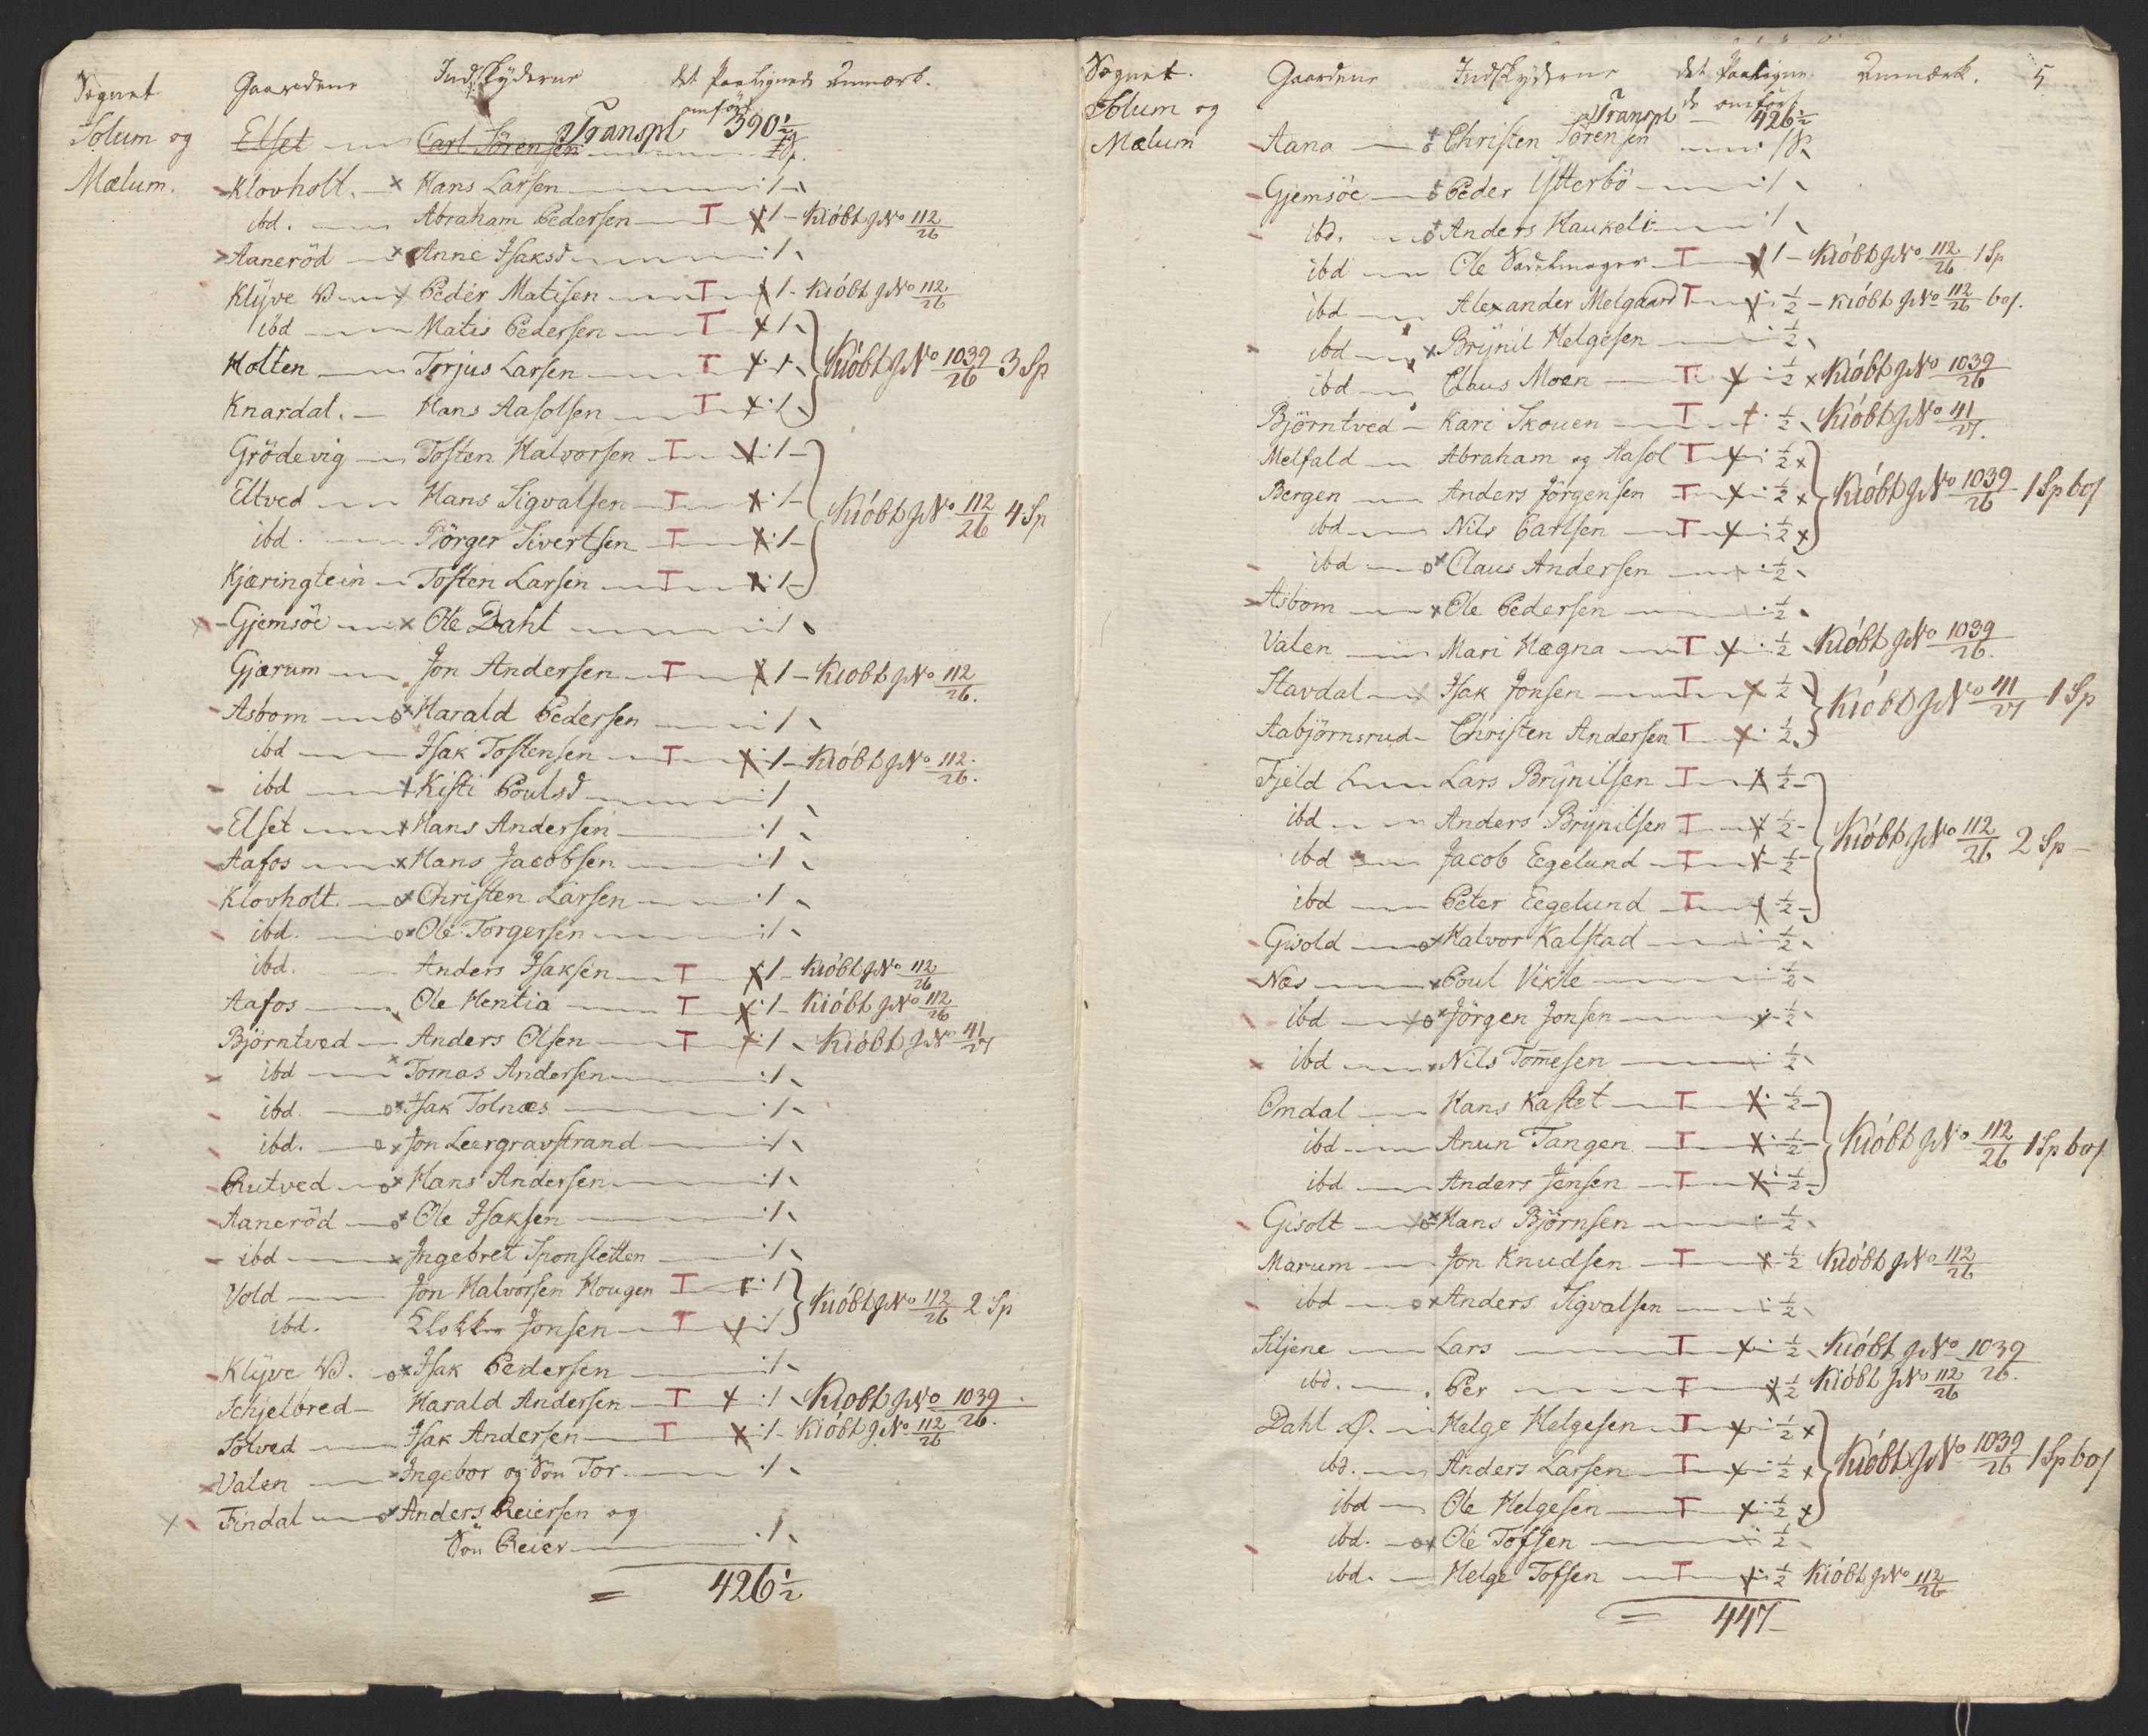 Sognet Gaardene Indskyderne det Paalignede Anmærk.
omført
Solum og Elset Carl Sörensen Transpt 390½
Mælum. Klovholt. × Hans Larsen 1
ibd. Abraham Pedersen T × 1 Kióbt J№ 112/26
Aaneröd × Anne Isaksd 1
Klÿve × Peder Matisen T × 1 Kióbt J№ 112/26
ibd Matis Pedersen T × 1
Holten Torjus Larsen T × 1 Kióbt J№ 1039/26 3 Sp
Knardal. Hans Aasolsen T × 1
Grödevig Tosten Halvorsen T × 1
Eltved Hans Sigvalsen T × 1 Kióbt J№ 112/26 4 Sp
ibd. Börger Sivertsen T × 1
Kjæringtein Tosten Larsen T × 1
Gjemsöe × Ole Dahl 1
Gjærum Jon Andersen T × 1 Kióbt J№ 112/26.
Asbom o× Harald Pedersen 1
ibd Isak Tostensen T × 1 Kióbt J№ 112/26.
ibd × Kisti Poulsd 1
Elset × Hans Andersen 1
Aafos × Hans Jacobsen 1
Klovholt. o× Christen Larsen 1
ibd. o× Ole Torgersen 1
ibd. Anders Isaksen T × 1 Kióbt J№ 112/26
Aafos Ole Hentia T × 1 Kióbt J№ 112/26
Björntved Anders Olsen T × 1 Kióbt J№ 41/27
ibd × Tomas Andersen 1
ibd. o× Isak Tolnæs 1
ibd. o× Jon Leergravstrand 1
Rutved o× Hans Andersen 1
Aaneröd o× Ole Isaksen 1
ibd × Ingebret Sponsletten 1
Vold Jon Halvorsen Hougen T × 1 Kióbt J№ 112/26 2 Sp
ibd. Jonsen T × 1
Klÿve o× Isak Pedersen 1
Schjelbred Harald Andersen T × 1 Kióbt J№ 1039/26.
Solved Isak Andersen T × 1 Kióbt J№ 112/26
Valen × Ingebor og Sön Tor 1
× Findal o× Anders Reiersen og
Sön Reier 1
= 426½
Sognet. Gaardene Indskyderne det Paaligne Anmærk. 5
de omført
Solum og Transpt 426½
Mælum Aana o Christen Sörensen 1 Sp
Gjemsöe o Peder Ytterbö 1
ibd. o Anders Haukeli 1
ibd Ole Sadelmager T × 1 Kióbt J№ 112/26 1 Sp
ibd Alexander Melgaard T × ½ Kióbt J№ 112/26 60ſ.
ibd × Brÿnil Helgesen ½
ibd Claus Moen T × ½ × Kióbt J№ 1039/26
Björntved Kari Skouen T × ½ Kióbt J№ 41/27.
Melfald Abraham og Aasol T × ½ ×
Bergen Anders Jörgensen T × ½ × Kióbt J№ 1039/26 1 Sp 60ſ
ibd Nils Carlsen T × ½ ×
ibd o× Claus Andersen ½
Asbom × Ole Pedersen ½
Valen Mari Hægna T × ½ Kióbt J№ 1039/26.
Stavdal Isak Jonsen T × ½ Kióbt J№ 41/27 1 Sp
Aabjörnsrud Christen Andersen T × ½
Fjeld Lars Brÿnilsen T × ½
ibd Anders Brÿnilsen T × ½ Kióbt J№ 112/26 2 Sp
ibd Jacob Eegelund T × ½
ibd Peter Eegelund T × ½
Gisold o× Halvor Kalstad ½
Næs × Poul Vikle ½
ibd o× Jörgen Jonsen ½
ibd × Nils Tom̅esen ½
Omdal Hans Kastet T × ½
ibd Anun Tangen T × ½ Kióbt J№ 112/26 1 Sp 60ſ
ibd Anders Jensen T × ½
Gisolt o× Hans Björnsen ½
Marum Jon Knudsen T × ½ Kióbt J№ 112/26
ibd o× Anders Sigvalsen ½
Siljene Lars T × ½ Kióbt J№ 1039/26.
ibd. Per T × ½ Kióbt J№ 112/26
Dahl Ø. Helge Helgesen T × ½ ×
ibd. Anders Larsen T × ½ × Kióbt J№ 1039/26 1 Sp 60ſ
ibd Ole Helgesen T × ½ ×
ibd. o× Ole Tofsen ½
ibd. Helge Tofsen T × ½ Kióbt J№ 112/26
= 447